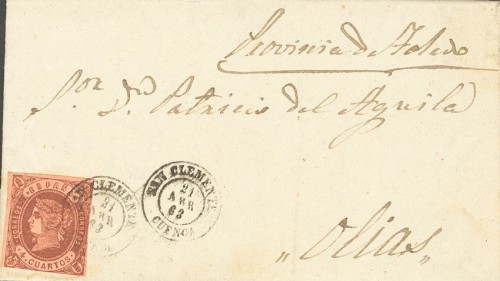 Provincia de Toledo
Sor Dn Patricio del Aguila
SAN CLEMENTE
21
ABR
63
CUENCA
SAN CLEMENTE
21
ABR
63
CORREOS
4 CUARTOS
„Olias„